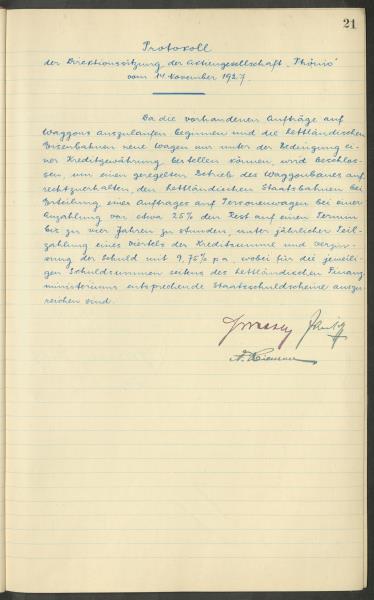 21
Protokoll
der Direktionssitzung der Aktiengesellschaft „Phönix"
vom 14 November 1927.
Da die vorhandenen Aufträge auf
Waggons auszulaufen beginnen und die Lettländischen
Eisenbahnen neue Wagen nur unter der Bedingung ei-
ner Kreditgewährung bestellen können, wird beschlos-
sen, um einen geregelten Betrieb des Waggonbaues auf-
rechtzuerhalten, den Lettländischen Staatsbahnen bei
Erteilung eines Auftrages auf Personenwagen bei einer
Anzahlung von etwa 25% den Rest auf einen Termin
bis zu vier Jahren zu stunden, unter jährlicher Teil-
zahlung eines Viertels der Kreditsumme und Verzin-
sung der Schuld mit 9,75% p.a., wobei für die jeweili-
gen Schuldsummen seitens des Lettländischen Finanz-
ministeriums entsprechende Staatsschuldscheine auszu-
reichen sind.